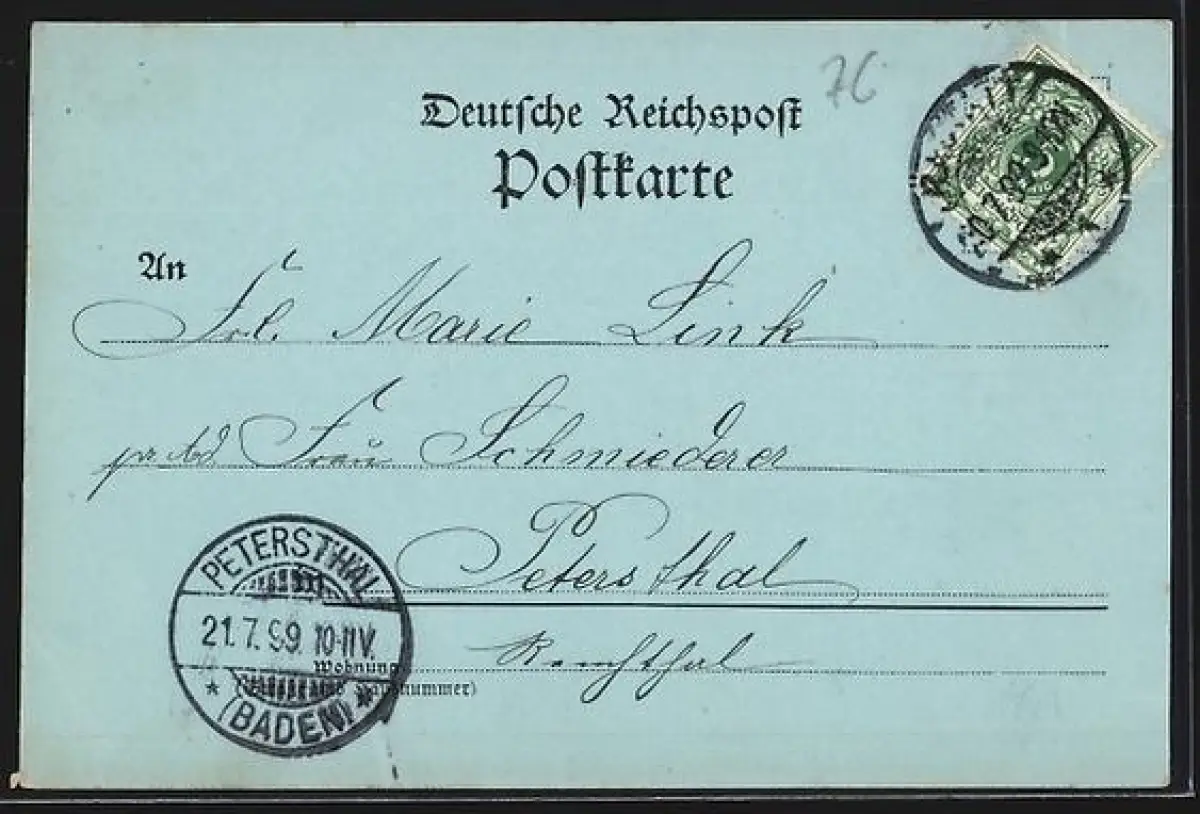 76
Deutsche Reichspost
Postkarte
20.7.99
An
Frl. Marie Link
Frau Schmiederer
Petersthal
Renchthal
PETERSTHAL
21.7.99. 10-11V.
(BADEN)
Wohnung